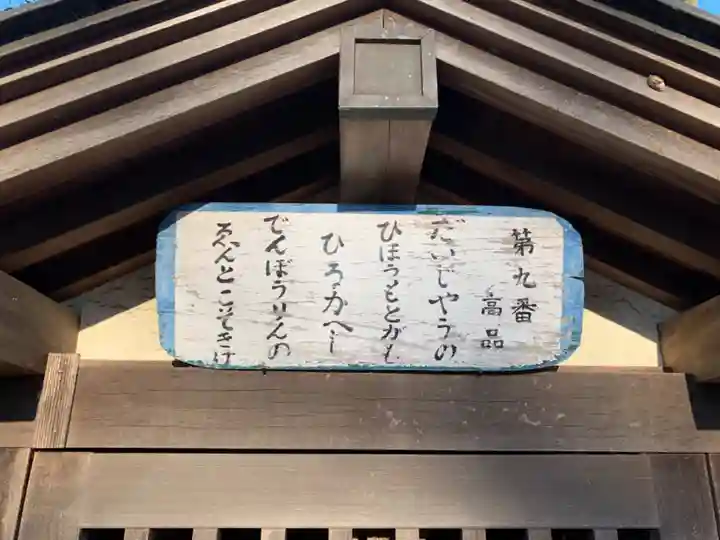 第九番
高品
だいじやうの
ひほうもとがも
ひるがへし
でんぼうりんの
ゑんとこそきけ